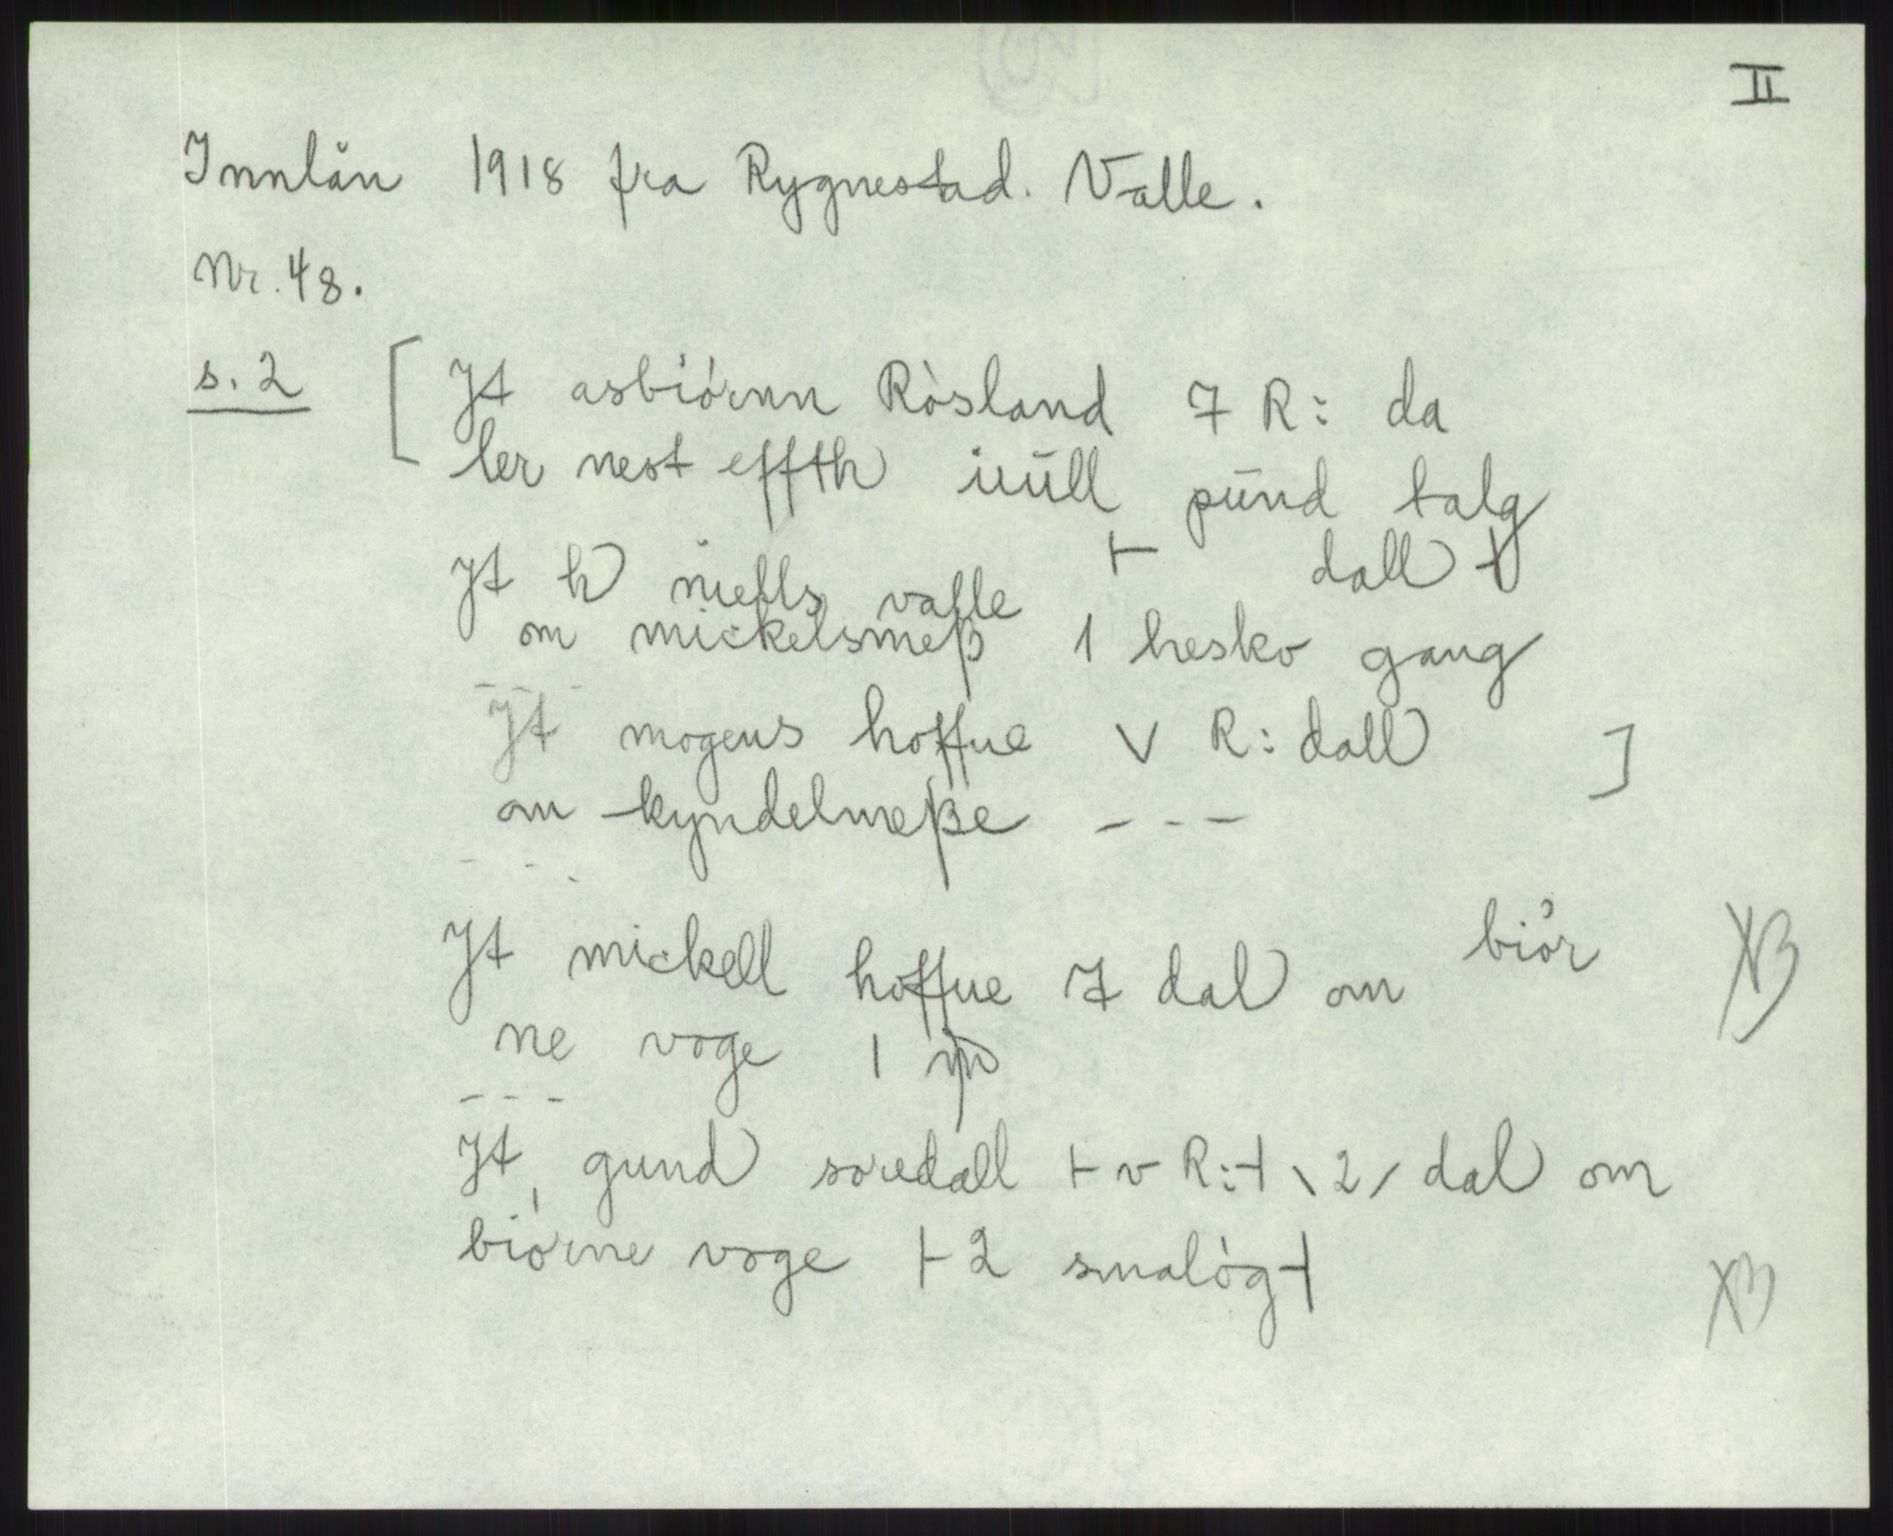 II
Innlån 1918 fra Rygnestad. Valle.
Nr. 48.
s. 2 [ Jt asbiórnn Ròsland 7 R: da
ler nest effth iuūll pūnd talg
Jt h niells valle ⊢ dall ⊣
om mickelsmeß 1 hesko gang
- - -
Jt mogens hoffue V R: dall ]
om kyndelmeße - - -
- - -
Jt mickell hoffue 7 dal om biòr
ne voge 1
- - -
Jt, gund soredall ⊢ v R: ⊣ \ 2 / dal om
biórne voge ⊢ 2 smalòg ⊣